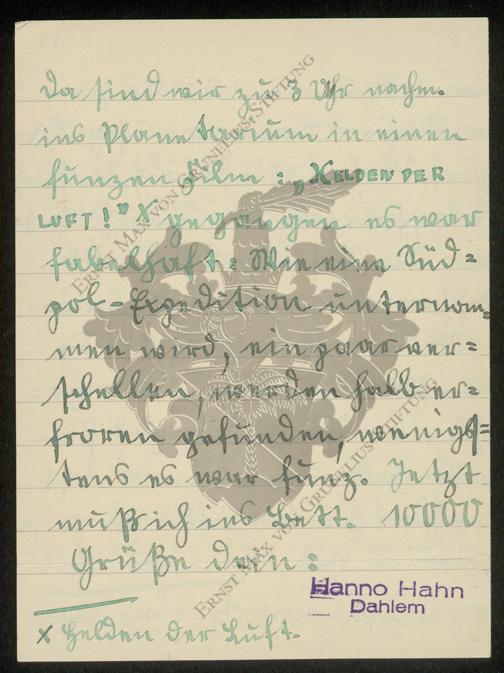 Da sind wir zu 3 Uhr nachm.
ins Planetarium in einen
funzen Film: „HELDEN DER
LUFT!" X gegangen es war
fabelhaft: Wie eine Süd=
pol-Expedition unternom=
men wird, ein paar ver=
schellen, werden halb er=
froren gefunden, wenigs=
tens es war funz. Jetzt
muß ich ins Bett. 10000
Grüße dein:
Hanno Hahn
Dahlem
X Helden der Luft.
ERNST MAX VON GRUNELIUS-STIFTUNG
ERNST MAX VON GRUNELIUS-STIFTUNG